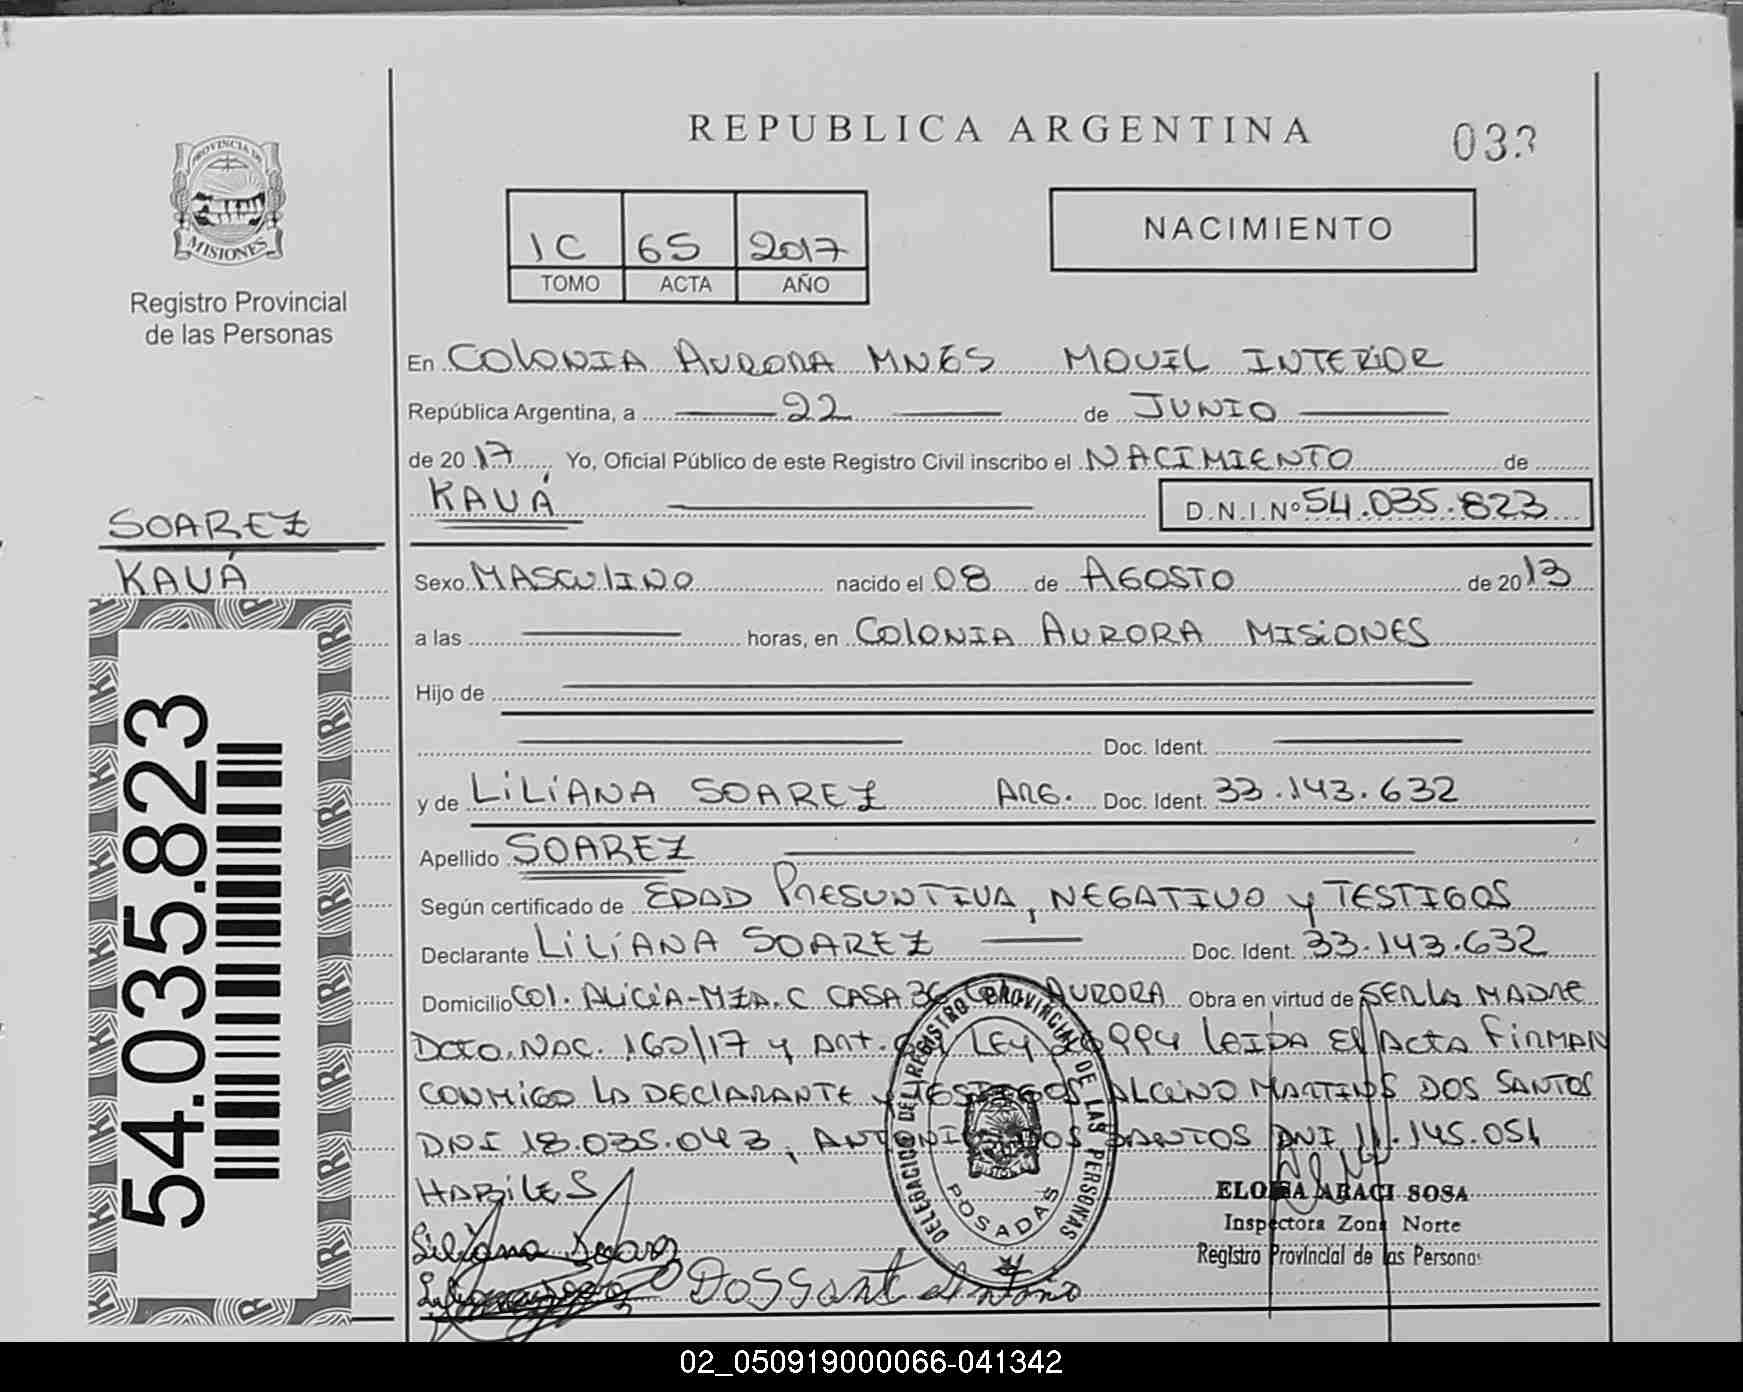 REPUBLICA ARGENTINA
033
PROVINCIA DE
MISIONES
Registro Provincial
de las Personas
1C 65 2017
TOMO ACTA AÑO
NACIMIENTO
En COLONIA AURORA MNES MOVIL INTERIOR
República Argentina, a 22 de JUNIO
de 2017 Yo, Oficial Público de este Registro Civil inscribo el NACIMIENTO de
KAUÁ D.N.I.Nº 54.035.823
SOAREZ
KAUÁ
Sexo MASCULINO nacido el 08 de AGOSTO de 2013
a las horas, en COLONIA AURORA MISIONES
Hijo de
Doc. Ident.
y de LILIANA SOAREZ ARG. Doc. Ident. 33.143.632
Apellido SOAREZ
Según certificado de EDAD PRESUNTIVA, NEGATIVO y TESTIGOS
Declarante LILIANA SOAREZ Doc. Ident. 33.143.632
Domicilio COL. ALICIA-MZA. C CASA 36 COL. AURORA Obra en virtud de SER LA MADRE
DCTO. NAC. 160/17 y ART. LEY 26994 LEIDA EL ACTA FIRMAN
CONMIGO LA DECLARANTE y TESTIGOS ALCINO MARTINS DOS SANTOS
DNI 18.035.043, ANTONIO DOS SANTOS DNI 11.145.051
HABILES
54.035.823
DELEGACION DEL REGISTRO PROVINCIAL DE LAS PERSONAS
POSADAS
ELOISA ARACI SOSA
Inspectora Zona Norte
Registro Provincial de las Personas
Liliana Soarez
Dos Sant
02_050919000066-041342